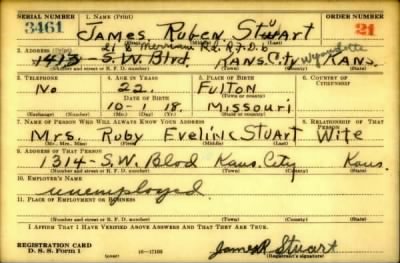 SERIAL NUMBER 1. NAME (Print) ORDER NUMBER
3461 James Ruben Stuart 21
(First) (Middle) (Last)
2. ADDRESS (Print) 21 & Merriam Rd. R.F.D. 6 Wyandotte
1413 - S.W. Blvd. Kans. City Kans.
(Number and street or R. F. D. number) (Town) (County) (State)
3. TELEPHONE 4. AGE IN YEARS 5. PLACE OF BIRTH 6. COUNTRY OF CITIZENSHIP
No 22. Fulton
DATE OF BIRTH (Town or county)
10-1-18. Missouri
(Exchange) (Number) (Mo.) (Day) (Yr.) (State or country)
7. NAME OF PERSON WHO WILL ALWAYS KNOW YOUR ADDRESS 8. RELATIONSHIP OF THAT PERSON
Mrs. Ruby Eveline Stuart Wife
(Mr., Mrs., Miss) (First) (Middle) (Last)
9. ADDRESS OF THAT PERSON
1314 - S.W. Blvd Kans. City Kans.
(Number and street or R. F. D. number) (Town) (County) (State)
10. EMPLOYER'S NAME
unemployed.
11. PLACE OF EMPLOYMENT OR BUSINESS
(Number and street or R. F. D. number) (Town) (County) (State)
I AFFIRM THAT I HAVE VERIFIED ABOVE ANSWERS AND THAT THEY ARE TRUE.
REGISTRATION CARD
D. S. S. Form 1 (over) 16-17105 James R Stuart
(Registrant's signature)